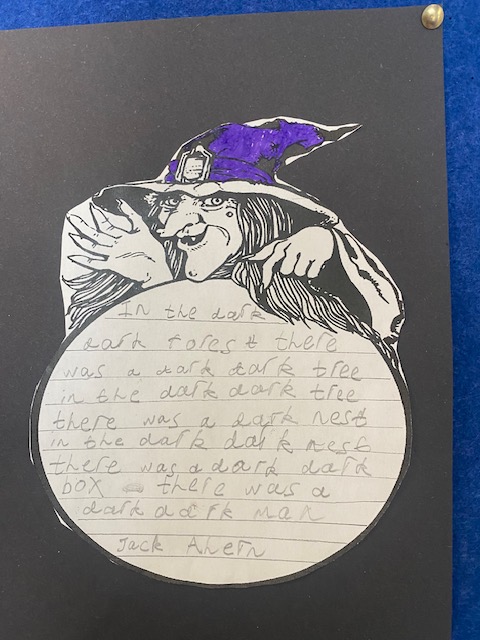 In the dark
dark forest there
was a dark dark tree
in the dark dark tree
there was a dark nest
in the dark dark nest
there was a dark dark
box there was a
dark dark man
Jack Ahern